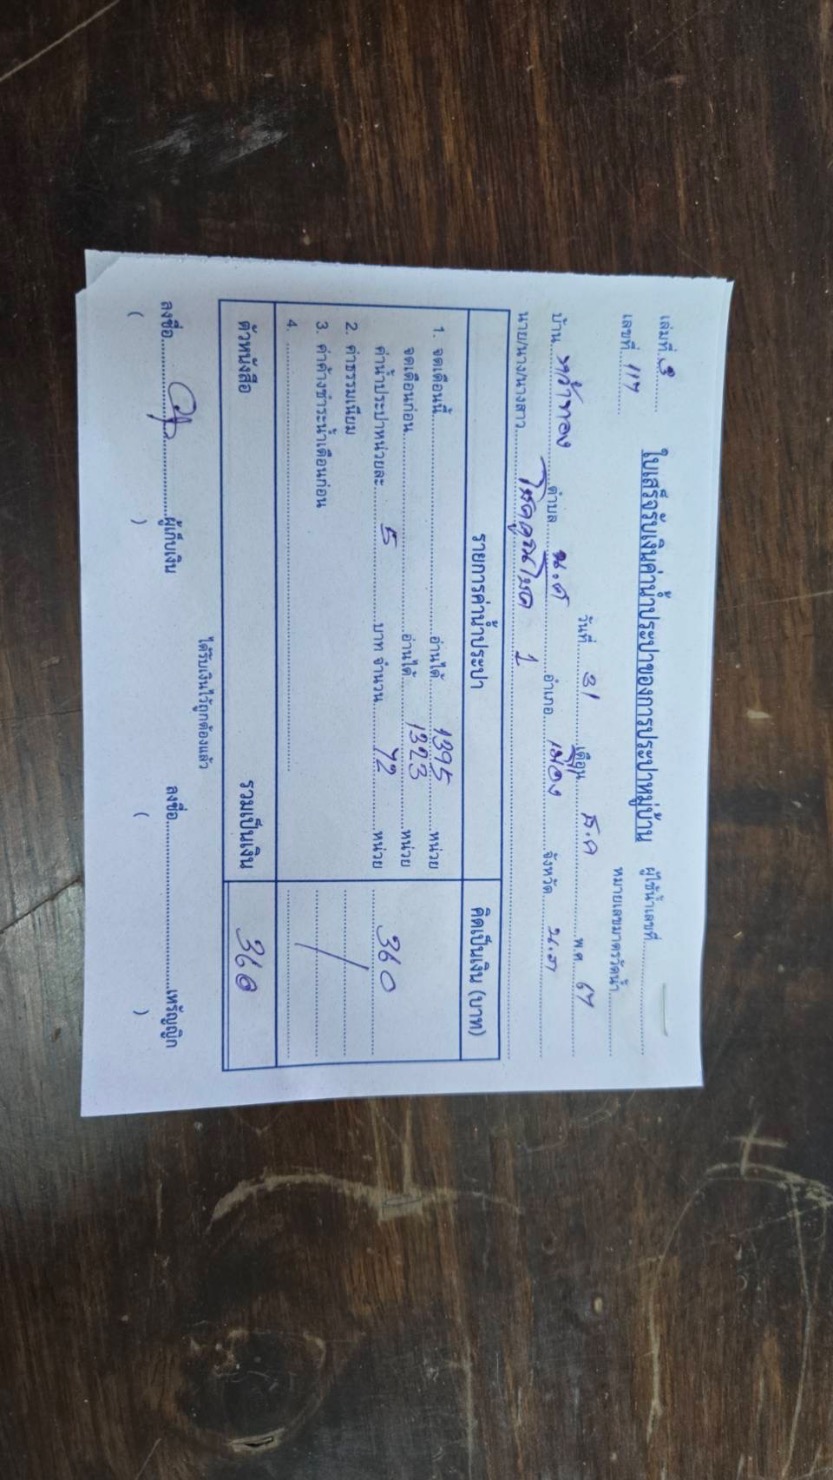 เล่มที่ 8 ใบเสร็จรับเงินค่าน้ำประปาของการประปาหมู่บ้าน ผู้ใช้น้ำเลขที่
เลขที่ 117 หมายเลขมาตรวัดน้ำ
วันที่ 31 เดือน ธ.ค พ.ศ. 67
บ้าน ตำบล อำเภอ เมือง จังหวัด
นาย/นาง/นางสาว 1
รายการค่าน้ำประปา คิดเป็นเงิน (บาท)
1. จดเดือนนี้ อ่านได้ 1395 หน่วย
จดเดือนก่อน อ่านได้ 1323 หน่วย
ค่าน้ำประปาหน่วยละ 5 บาท จำนวน 72 หน่วย 360
2. ค่าธรรมเนียม
3. ค่าค้างชำระน้ำเดือนก่อน
4.
ตัวหนังสือ รวมเป็นเงิน 360
ได้รับเงินไว้ถูกต้องแล้ว
ลงชื่อ ผู้เก็บเงิน ลงชื่อ เหรัญญิก
( ) ( )